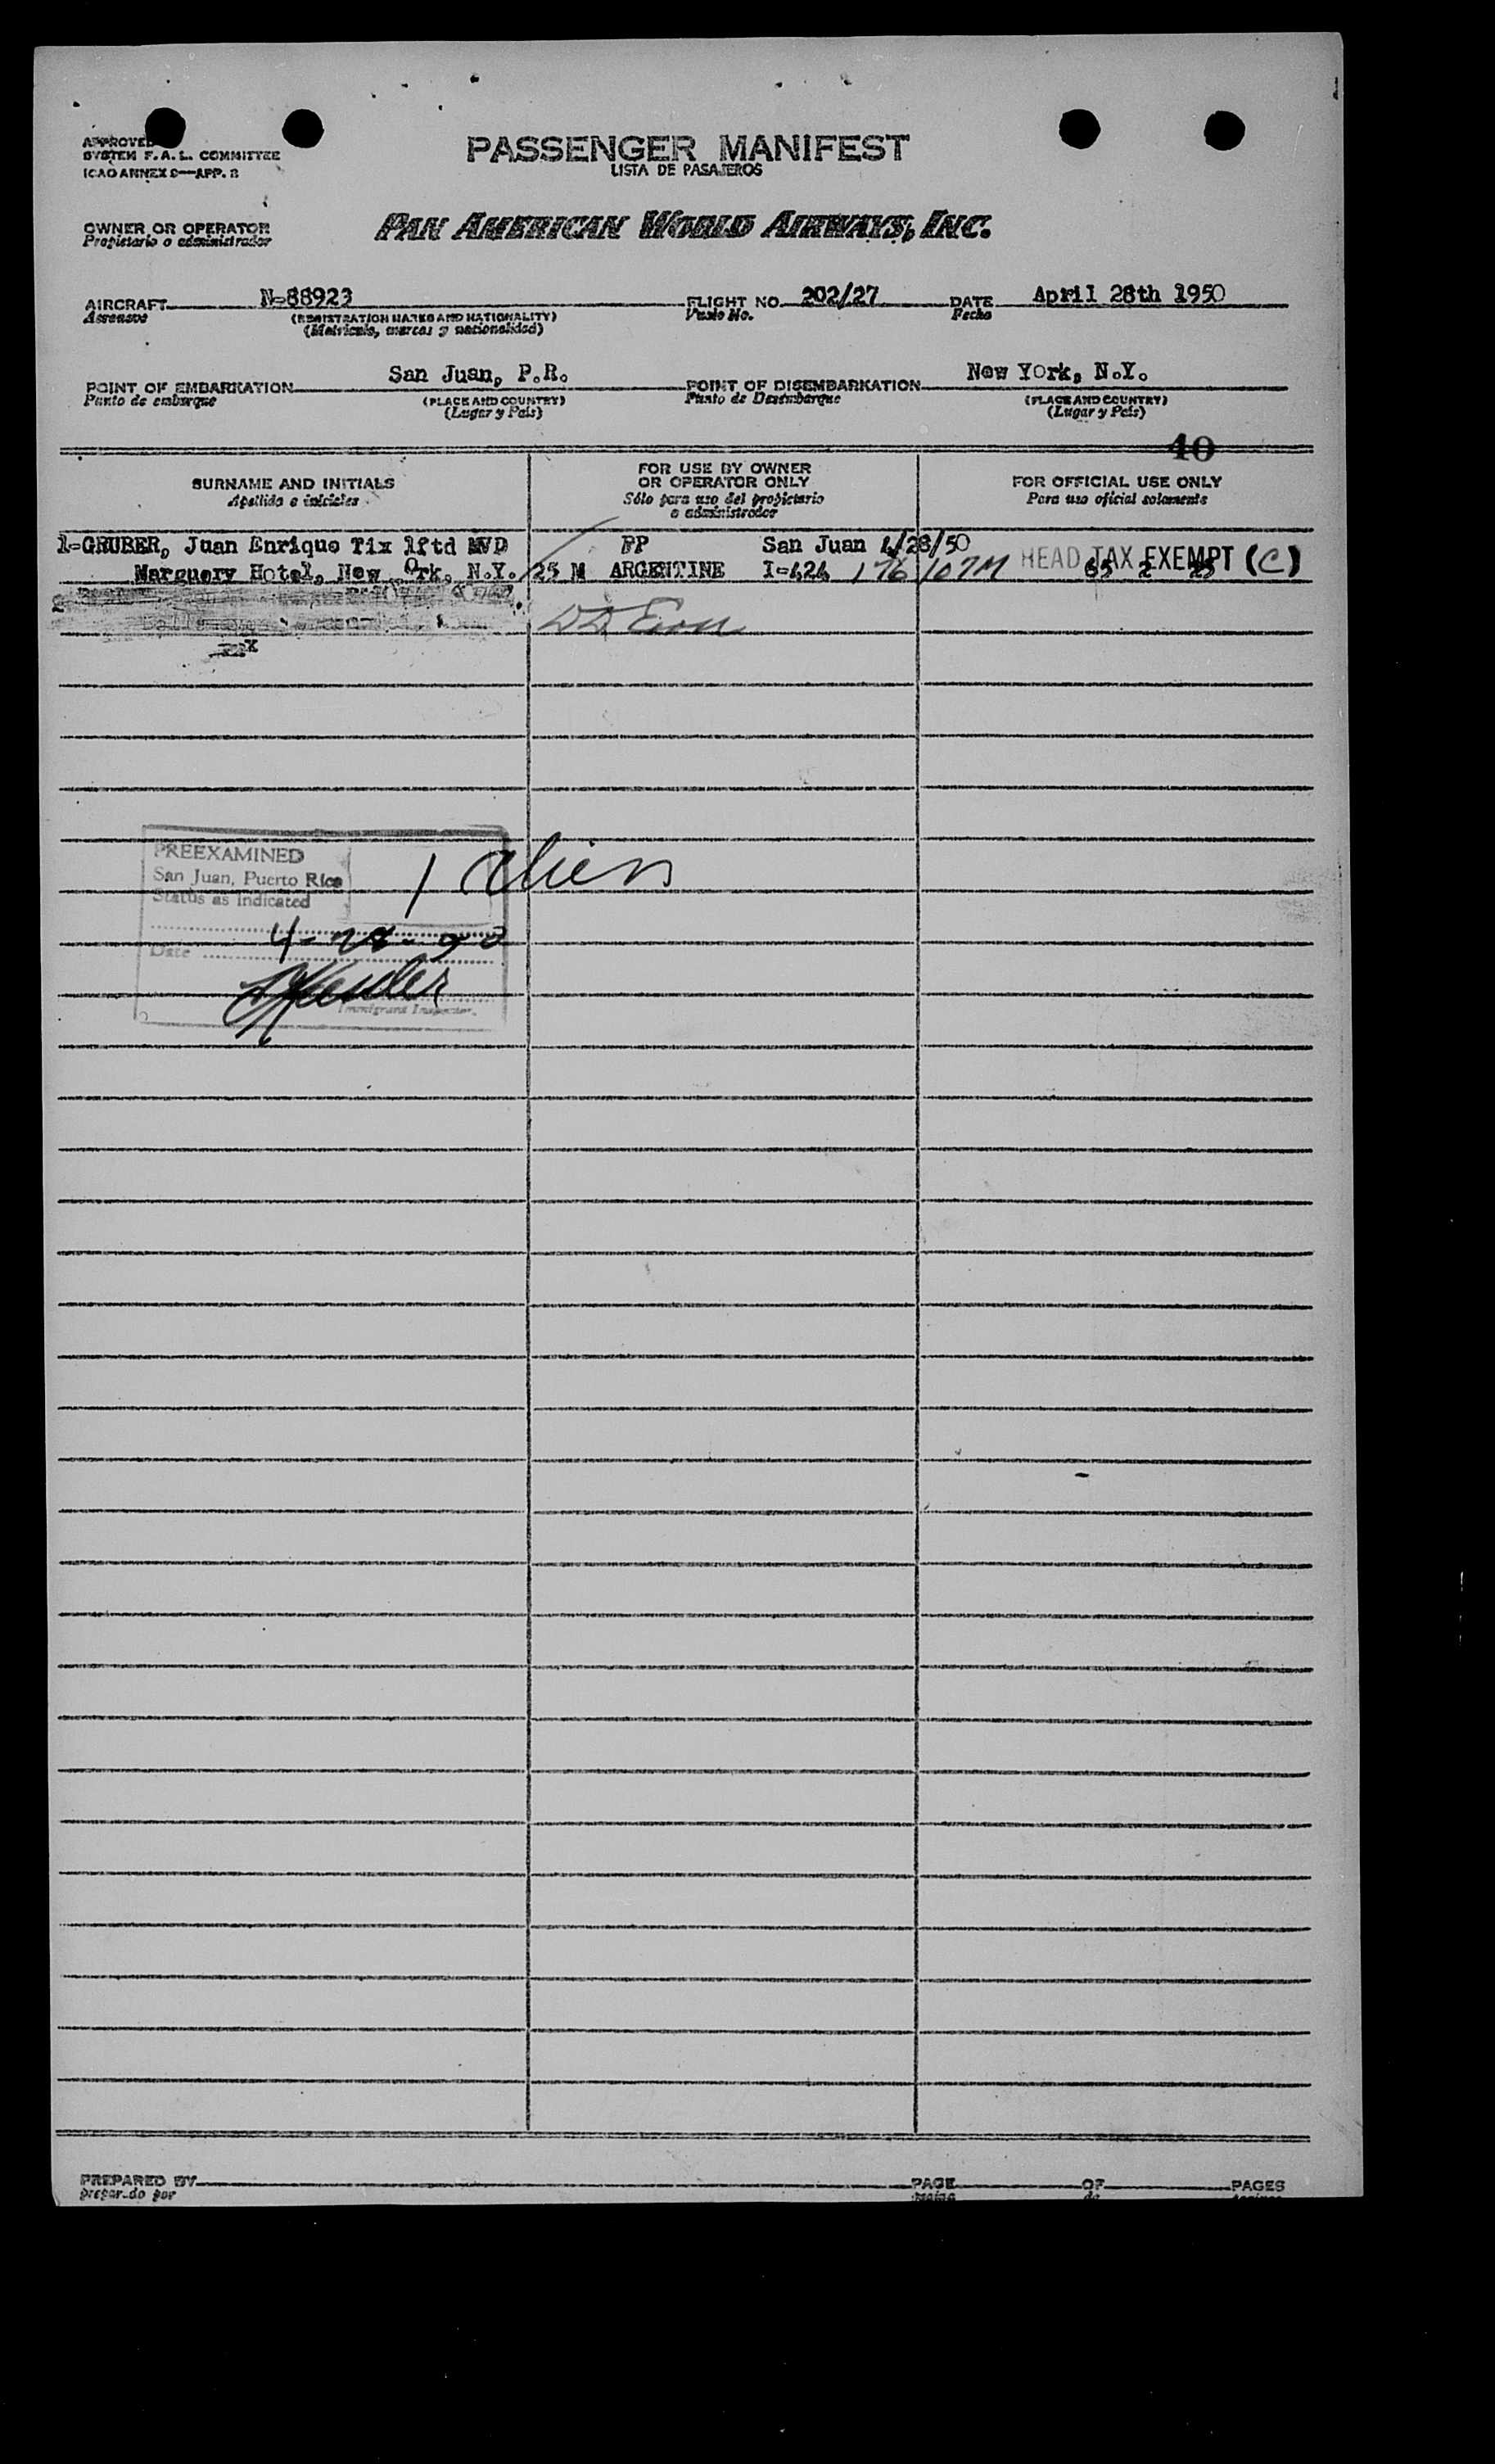 APPROVED
SYSTEM F.A.L. COMMITTEE
ICAO ANNEX 9—APP. 2
PASSENGER MANIFEST
LISTA DE PASAJEROS
OWNER OR OPERATOR
Propietario o administrador
PAN AMERICAN WORLD AIRWAYS, INC.
AIRCRAFT N-88923 FLIGHT NO. 202/27 DATE April 28th 1950
Aeronave (REGISTRATION MARKS AND NATIONALITY) Vuelo No. Fecha
(Matricula, marcas y nacionalidad)
POINT OF EMBARKATION San Juan, P.R. POINT OF DISEMBARKATION New York, N.Y.
Punto de embarque (PLACE AND COUNTRY) Punto de Desembarque (PLACE AND COUNTRY)
(Lugar y País) (Lugar y País)
40
SURNAME AND INITIALS
Apellido e iniciales
FOR USE BY OWNER
OR OPERATOR ONLY
Sólo para uso del propietario
o administrador
FOR OFFICIAL USE ONLY
Para uso oficial solamente
1-GRUBER, Juan Enrique Tix lftd MVD PP San Juan 4/28/50 HEAD TAX EXEMPT (C)
Marguery Hotel, New York, N.Y. 25 M ARGENTINE I-424 176/107M 65 2 25
PREEXAMINED
San Juan, Puerto Rico
Status as Indicated
1 alien
Date 4-28-50
Immigrant Inspector.
PREPARED BY PAGE OF PAGES
preparado por de